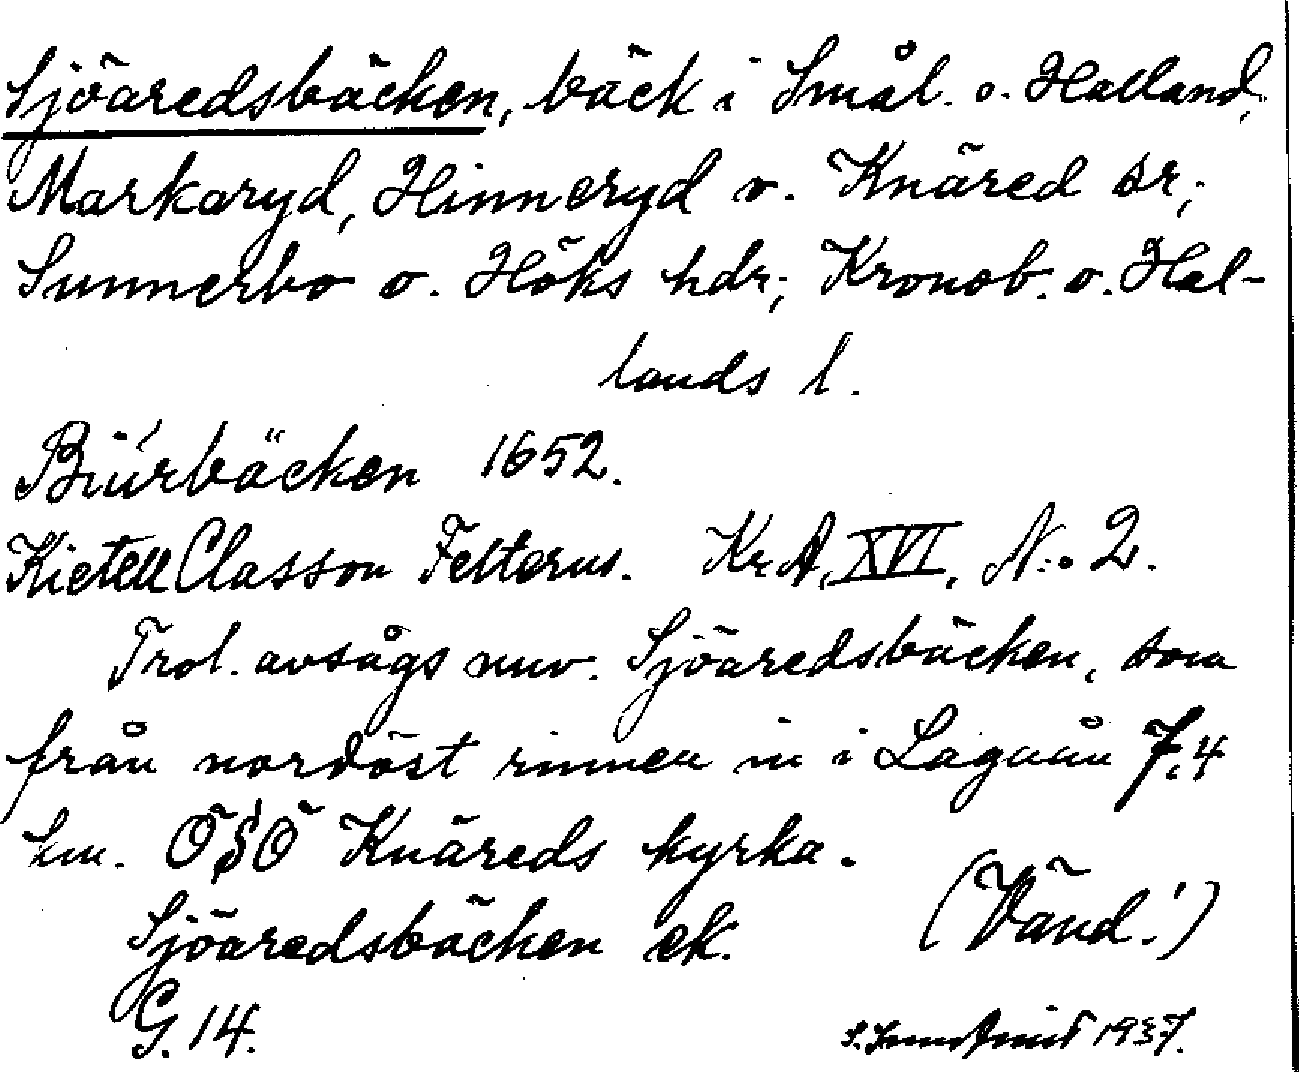 Sjöaredsbäcken, bäck i Smål. o. Halland,
Markaryd, Hinneryd o. Knäred sr;
Sunnerbo o. Höks hdr; Kronob. o. Hal-
lands l.
Biúrbäcken 1652.
Kietell Classon Felterus. KrA, XVI, N:o 2.
Trol. avsågs nuv. Sjöaredsbäcken, som
från nordöst rinner in i Lagaån 7,4
km. OSO Knäreds kyrka.
Sjöaredsbäcken ek. (Vänd!)
G. 14.
1937.